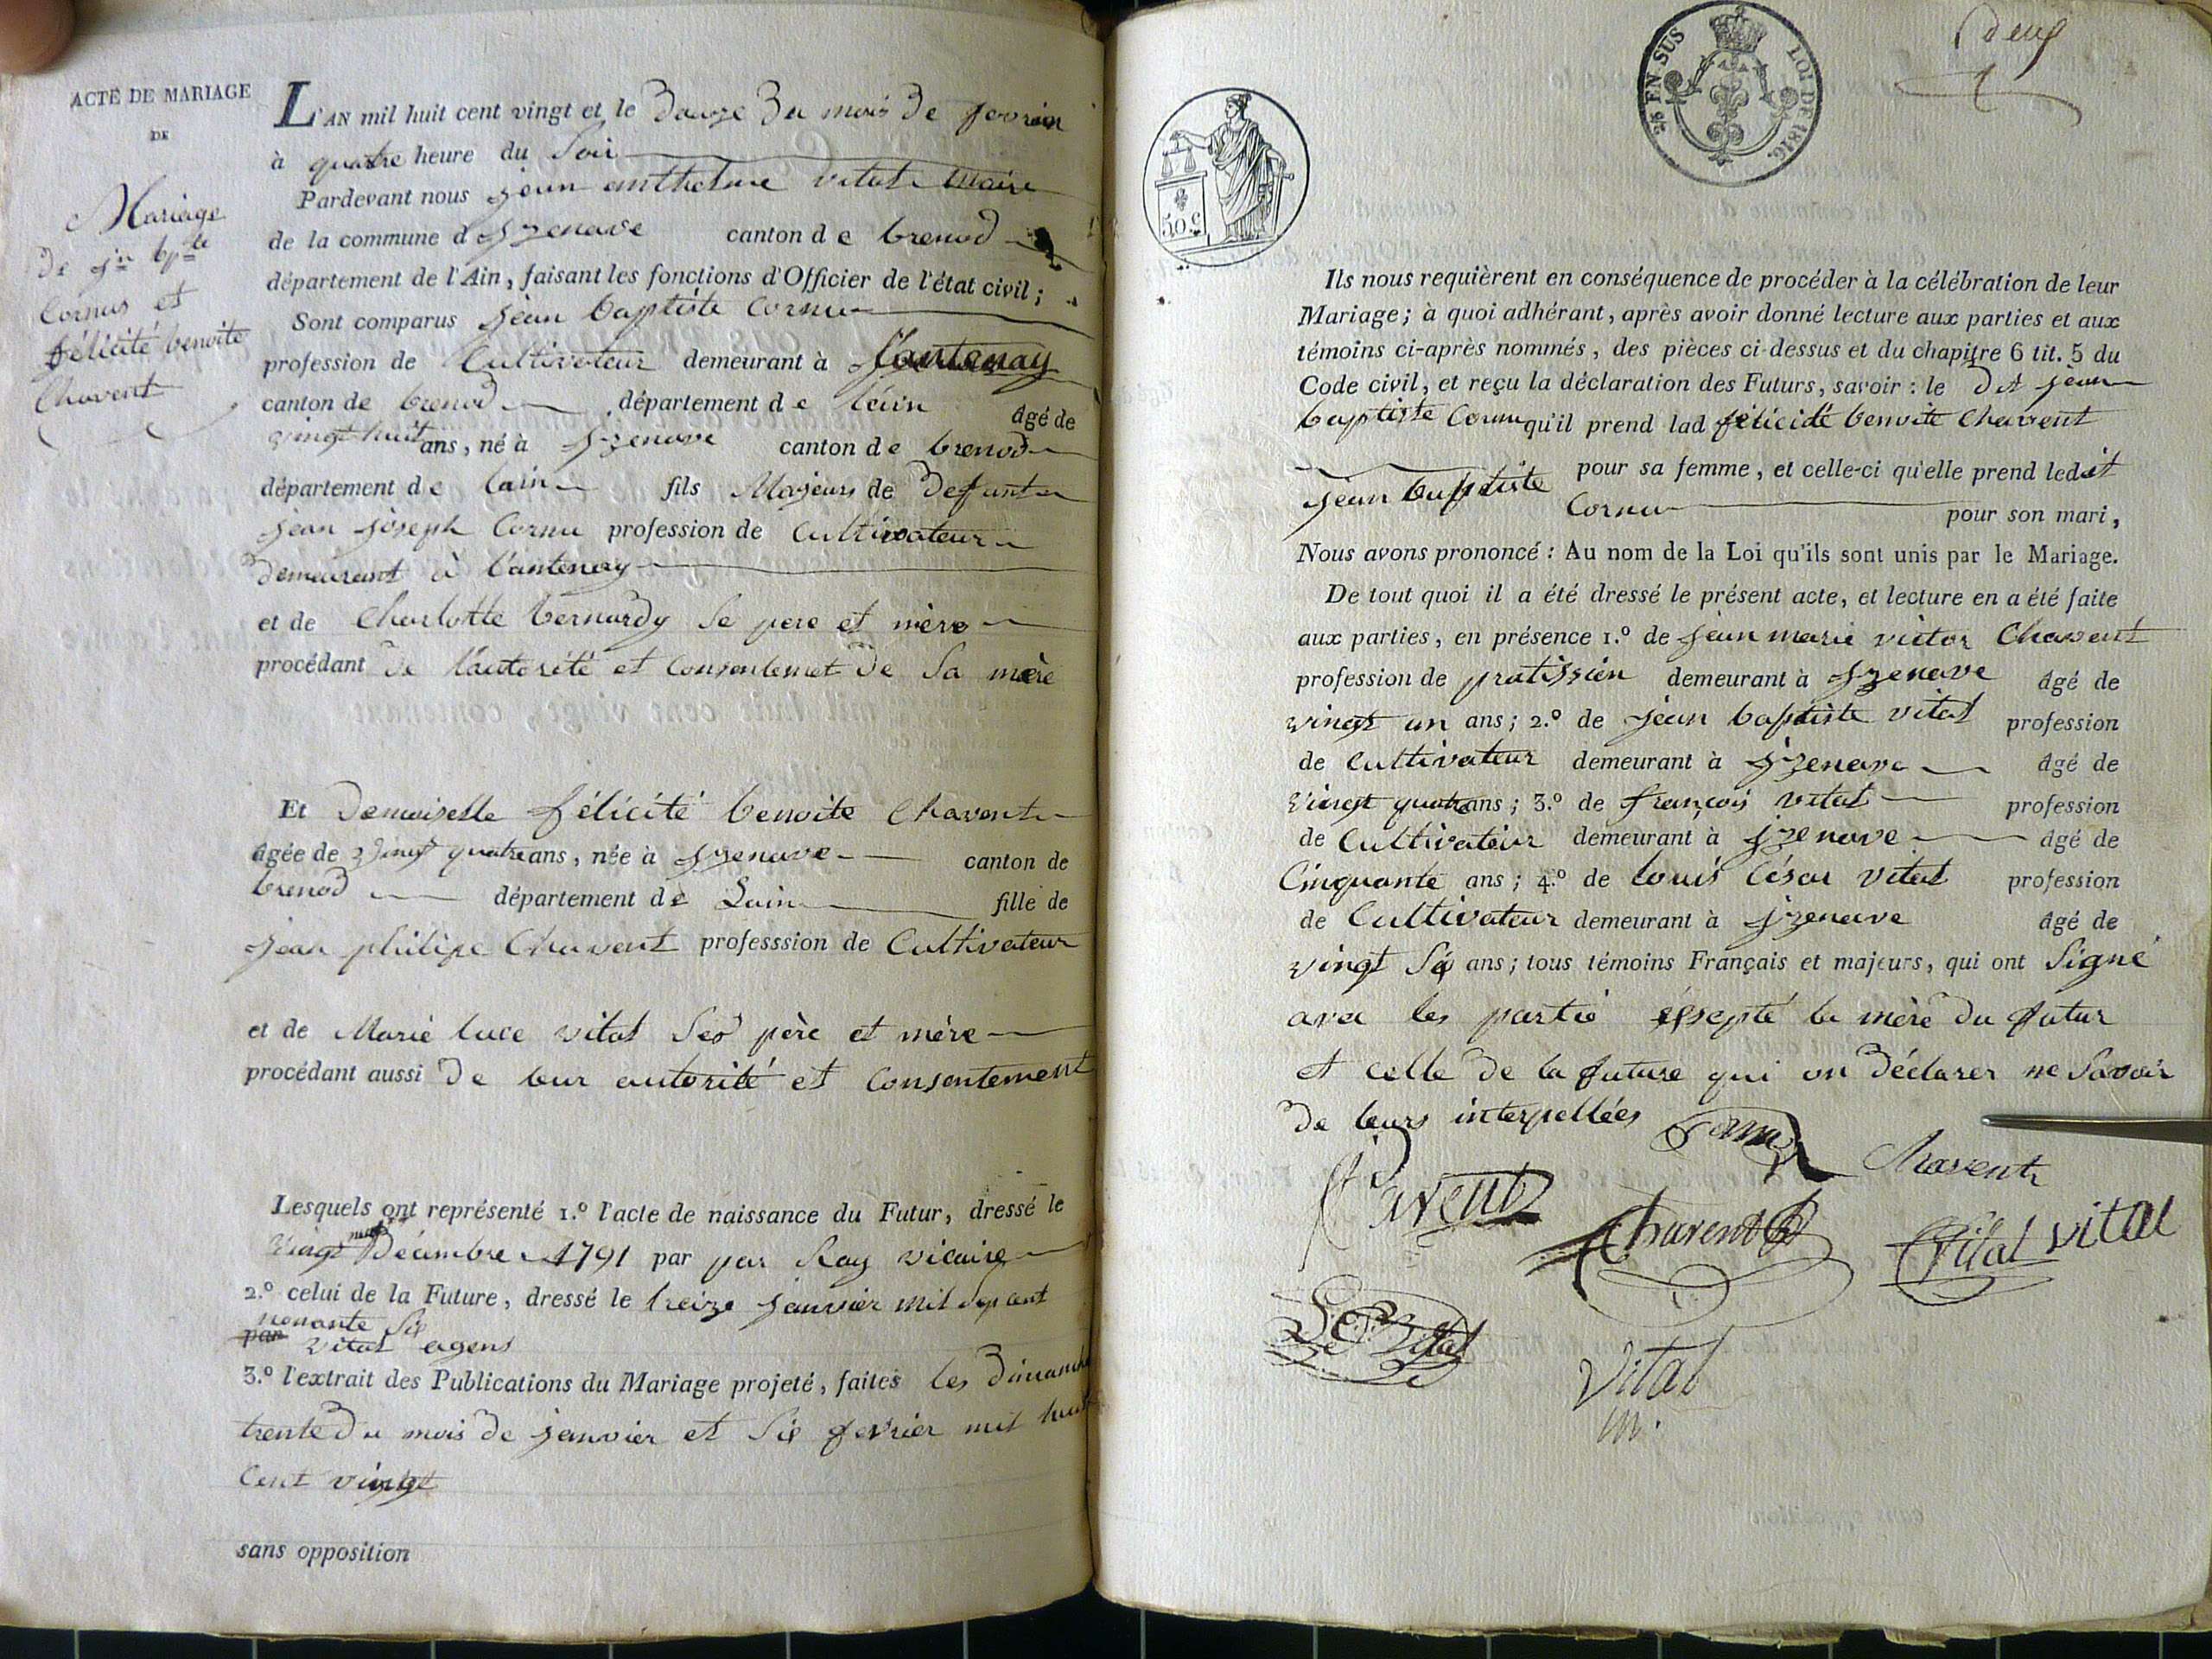 ACTE DE MARIAGE
DE
Mariage
de jn bpte
Cornus et
félicité benoite
Chavent
L'AN mil huit cent vingt et le douze du mois de fevrier
à quatre heure du Soir
Pardevant nous jean anthelme vital Maire
de la commune d jzenave canton de brenod
département de l'Ain, faisant les fonctions d'Officier de l'état civil;
Sont comparus jean baptiste Cornu
profession de Cultivateur demeurant à lantenay
canton de brenod département de lain âgé de
vingt huit ans, né à jzenave canton de brenod
département de lain fils Majeur de defunt
jean joseph Cornu profession de Cultivateur
demeurant à lantenay
et de Charlotte bernardy Se pere et mère
procédant de l'autorité et Consentemet de Sa mère
Et demoiselle félicité benoite Chavent
âgée de vingt quatre ans, née à jzenave canton de
brenod département de Lain fille de
jean philipe Chavent professsion de Cultivateur
et de Marie luce vital Séo père et mère
procédant aussi de leur autorité et Consentement
Lesquels ont représenté 1.º l'acte de naissance du Futur, dressé le
vingt neuf Décembre 1791 par par Ray vicaire
2.º celui de la Future, dressé le treize janvier mil Sep cent
nonante Six
par vital agens
3.º l'extrait des Publications du Mariage projeté, faites les dimanche
trente du mois de janvier et Six fevrier mil huit
Cent vingt
sans opposition
deux
EN SUS LOI DE 1816.
50 c
Ils nous requièrent en conséquence de procéder à la célébration de leur
Mariage; à quoi adhérant, après avoir donné lecture aux parties et aux
témoins ci-après nommés, des pièces ci-dessus et du chapitre 6 tit. 5 du
Code civil, et reçu la déclaration des Futurs, savoir: le dit jean
baptiste Cornu qu'il prend lad félicité benoite Chavent
pour sa femme, et celle-ci qu'elle prend ledit
jean baptiste Cornu pour son mari,
Nous avons prononcé: Au nom de la Loi qu'ils sont unis par le Mariage.
De tout quoi il a été dressé le présent acte, et lecture en a été faite
aux parties, en présence 1.º de jean marie victor Chavent
profession de pratissien demeurant à jzenave âgé de
vingt un ans; 2.º de jean baptiste vital profession
de Cultivateur demeurant à jzenave âgé de
vingt quatre ans; 3.º de françois vital profession
de Cultivateur demeurant à jzenave âgé de
Cinquante ans; 4.º de louis César vital profession
de Cultivateur demeurant à jzenave âgé de
vingt Six ans; tous témoins Français et majeurs, qui ont Signé
avec les partie éxsepté la mère du futur
et celle de la future qui on déclarer ne Savoir
de leurs interpellées
Chavent
Chavent
Vital vital
Vital
Vital
m.